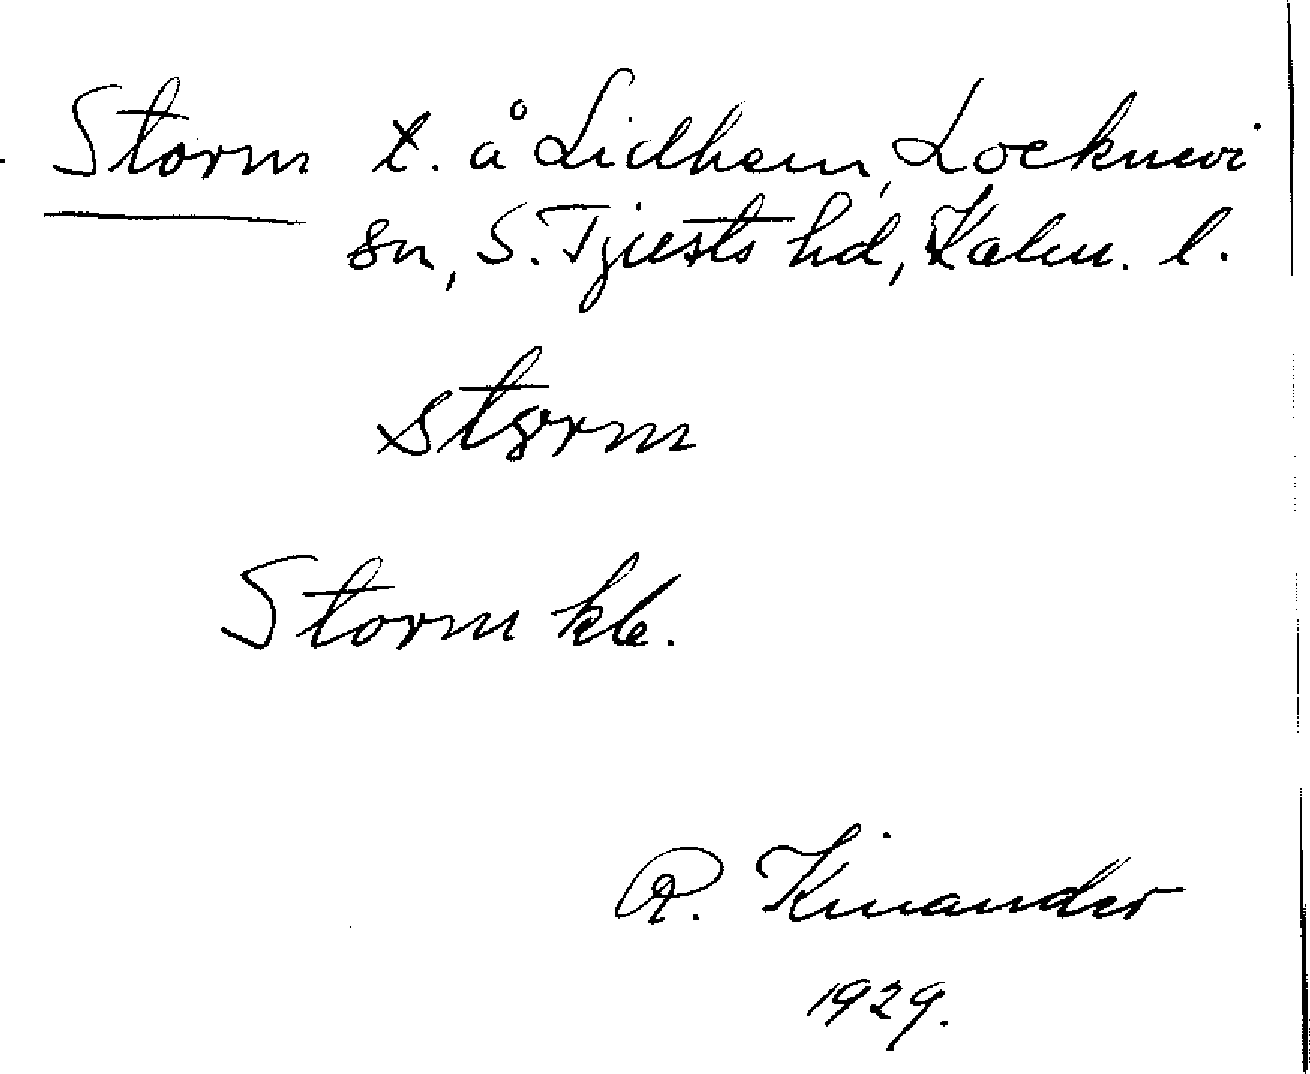 Storm t. å Lidhem, Locknevi
sn, S. Tjusts hd, Kalm. l.
storm
Storm kb.
R. Kinander
1929.